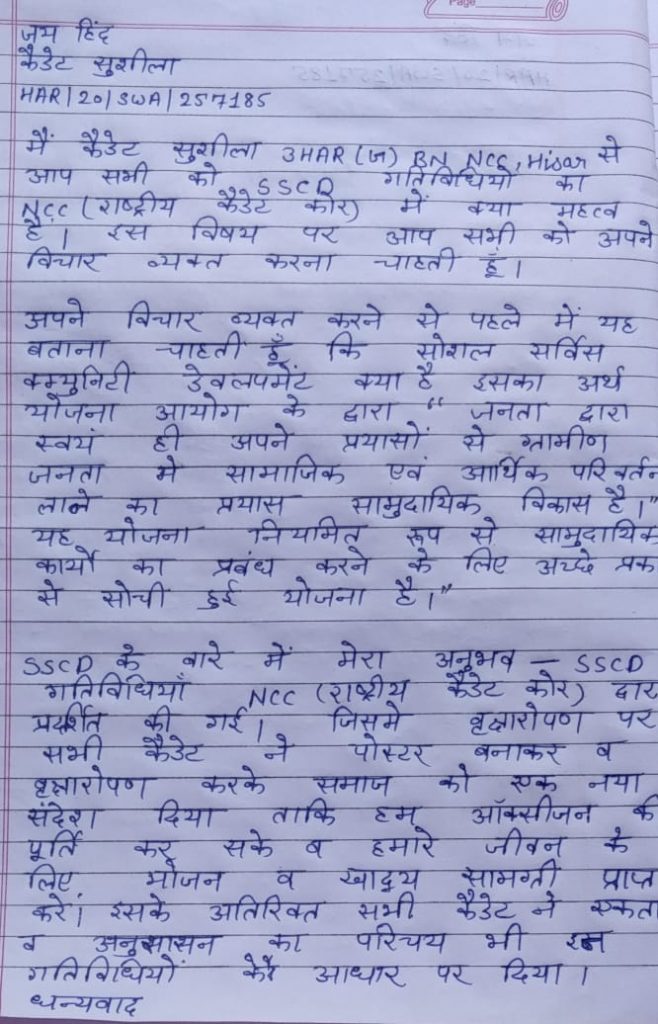 Page
जय हिंद
कैडेट सुशीला
HAR/20/SWA/257185
मैं कैडेट सुशीला 3HAR (ज) BN NCC, Hisar से
आप सभी को SSCD गतिविधियों का
NCC (राष्ट्रीय कैडेट कोर) में क्या महत्व
है। इस विषय पर आप सभी को अपने
विचार व्यक्त करना चाहती हूँ।
अपने विचार व्यक्त करने से पहले में यह
बताना चाहती हूँ कि सोशल सर्विस
कम्युनिटी डेवलपमेंट क्या है इसका अर्थ
योजना आयोग के द्वारा “ जनता द्वारा
स्वयं ही अपने प्रयासों से ग्रामीण
जनता में सामाजिक एवं आर्थिक परिवर्तन
लाने का प्रयास सामुदायिक विकास है।"
यह योजना नियमित रूप से सामुदायिक
कार्यों का प्रबंध करने के लिए अच्छे प्रक
से सोची हुई योजना है।"
SSCD के बारे में मेरा अनुभव — SSCD
गतिविधियाँ NCC (राष्ट्रीय कैडेट कोर) द्वार
प्रदर्शित की गई। जिसमें वृक्षारोपण पर
सभी कैडेट ने पोस्टर बनाकर व
वृक्षारोपण करके समाज को एक नया
संदेश दिया ताकि हम ऑक्सीजन की
पूर्ति कर सके व हमारे जीवन के
लिए भोजन व खाद्य सामग्री प्राप्त
करें। इसके अतिरिक्त सभी कैडेट ने एकता
व अनुसासन का परिचय भी इन
गतिविधियों के आधार पर दिया।
धन्यवाद